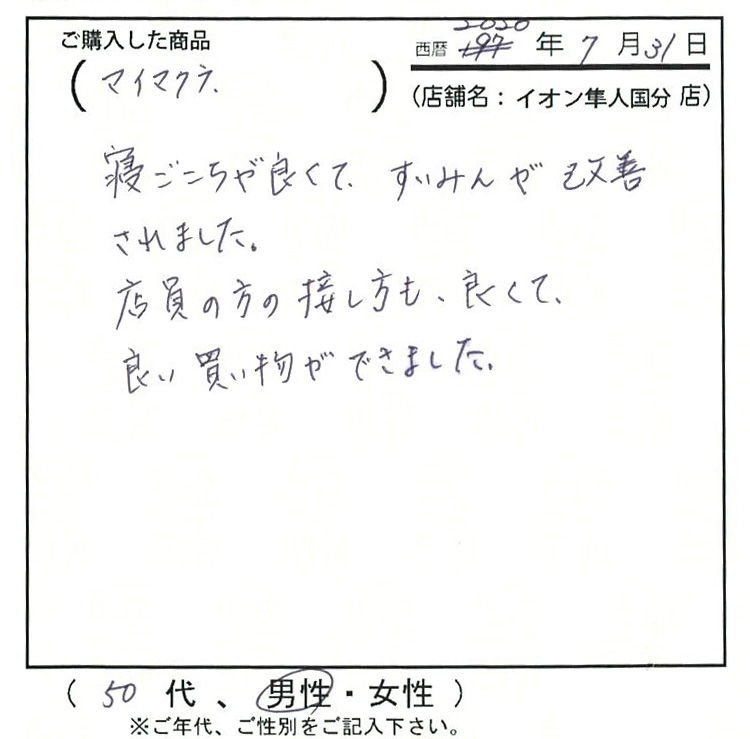 ご購入した商品
西暦 2020 年 7 月 31 日
(マイマクラ.)
(店舗名：イオン隼人国分 店)
寝ごこちが良くて、すいみんが改善
されました。
店員の方の接し方も、良くて、
良い買い物ができました。
( 50 代 、 男性・女性 )
※ご年代、ご性別をご記入下さい。